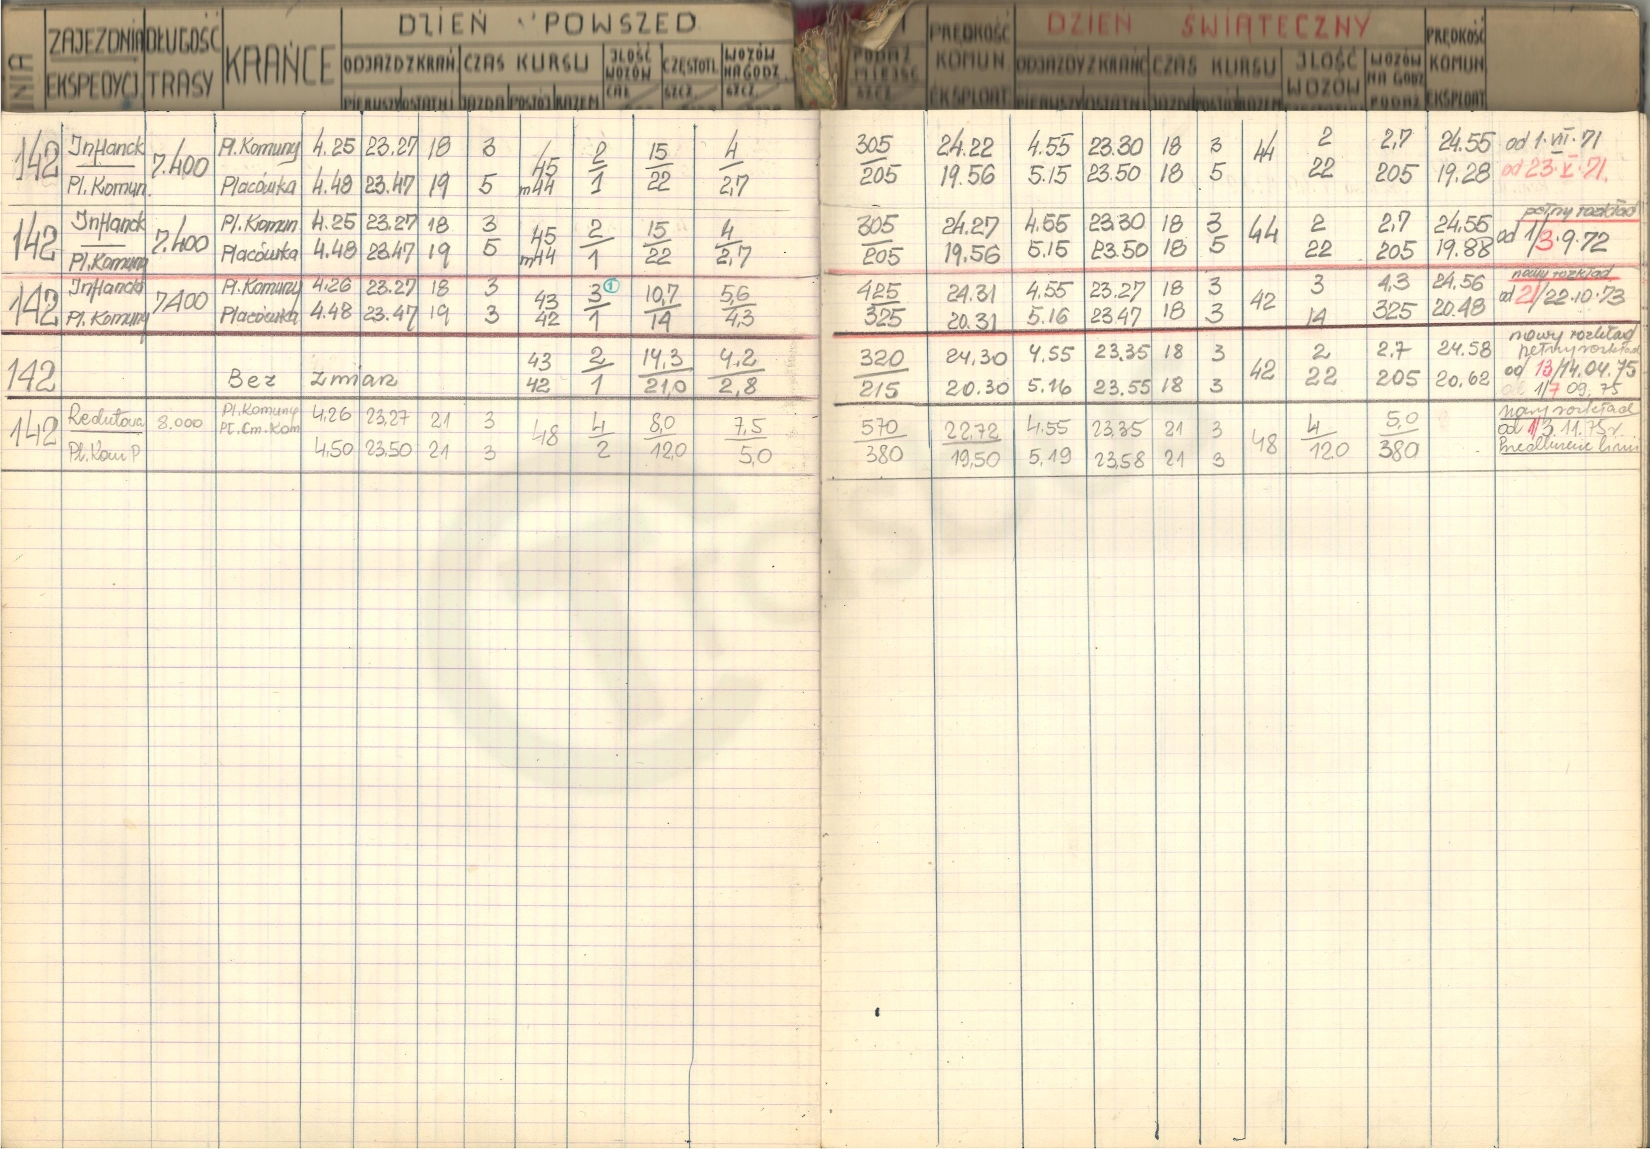 DZIEŃ POWSZED DZIEŃ ŚWIĄTECZNY
ZAJEZDNIA DŁUGOŚĆ KRAŃCE ODJAZD Z KRAŃ CZAS KURSU JLOŚĆ WOZÓW CZĘSTOTL WOZÓW NA GODZ. PODAŻ MIEJSC PRĘDKOŚĆ KOMUN ODJAZDY Z KRAŃC CZAS KURSU JLOŚĆ WOZÓW WOZÓW NA GODZ PRĘDKOŚĆ KOMUN.
EKSPEDYCJ TRASY PIERWSZY OSTATNI JAZDA POSTÓJ RAZEM SZCZ. SZCZ. EKSPLOAT PIERWSZY OSTATNI JAZDA POSTÓJ RAZEM PODAŻ EKSPLOAT
142 InHanck 7.400 Pl. Komuny 4.25 23.27 18 3 45 2 15 4 305 24.22 4.55 23.30 18 3 44 2 2,7 24.55 od 1·VII·71
Pl. Komun. Placówka 4.48 23.47 19 5 m44 1 22 2,7 205 19.56 5.15 23.50 18 5 22 205 19.28 od 23·X·71.
pełny rozkład
142 InHanck 7.400 Pl. Komun 4.25 23.27 18 3 45 2 15 4 305 24.27 4.55 23.30 18 3 44 2 2,7 24.55 od 1/3·9·72
Pl. Komuny Placówka 4.48 23.47 19 5 m44 1 22 2,7 205 19.56 5.15 23.50 18 5 22 205 19.88
nowy rozkład
142 InHanck 7400 Pl. Komuny 4.26 23.27 18 3 43 3 1 10,7 5,6 425 24.31 4.55 23.27 18 3 42 3 4,3 24.56 od 21/22·10·73
Pl. Komuny Placówka 4.48 23.47 19 3 42 1 14 4,3 325 20.31 5.16 23.47 18 3 14 325 20.48
nowy rozkład
pełny rozkład
142 43 2 14,3 4,2 320 24.30 4.55 23.35 18 3 42 2 2.7 24.58 od 13/14.04.75
Bez zmian 42 1 21,0 2,8 215 20.30 5.16 23.55 18 3 22 205 20.62 od 1/7 09.75
nowy rozkład
142 Redutowa 8.000 Pl. Komuny 4.26 23.27 21 3 48 4 8,0 7,5 570 22.72 4.55 23.35 21 3 48 4 5,0 od 1/3.11.75r
Pl. Cm. Kom
Pl. Kom P 4.50 23.50 21 3 2 12,0 5,0 380 19,50 5,19 23,58 21 3 120 380